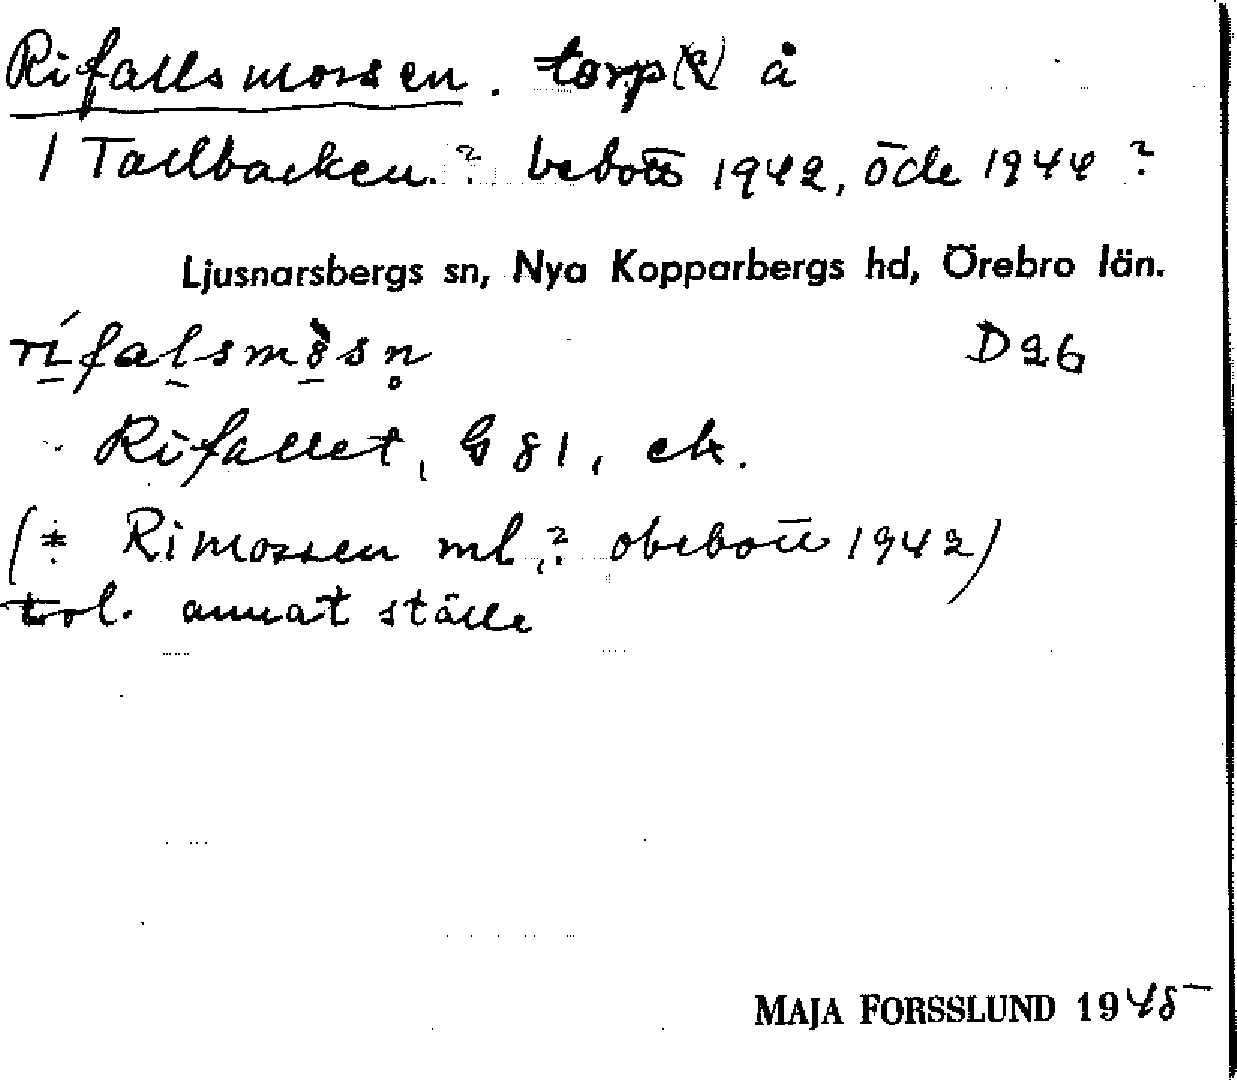 Rifallsmossen. torp(?) å
/ Tallbacken.? bebott 1942, öde 1944 ?
Ljusnarsbergs sn, Nya Kopparbergs hd, Örebro län.
rifalsmòsn D26
Rifallet, G 81, ek.
(* Rimossen ml,? obebott 1942)
trol. annat ställe
MAJA FORSSLUND 1945